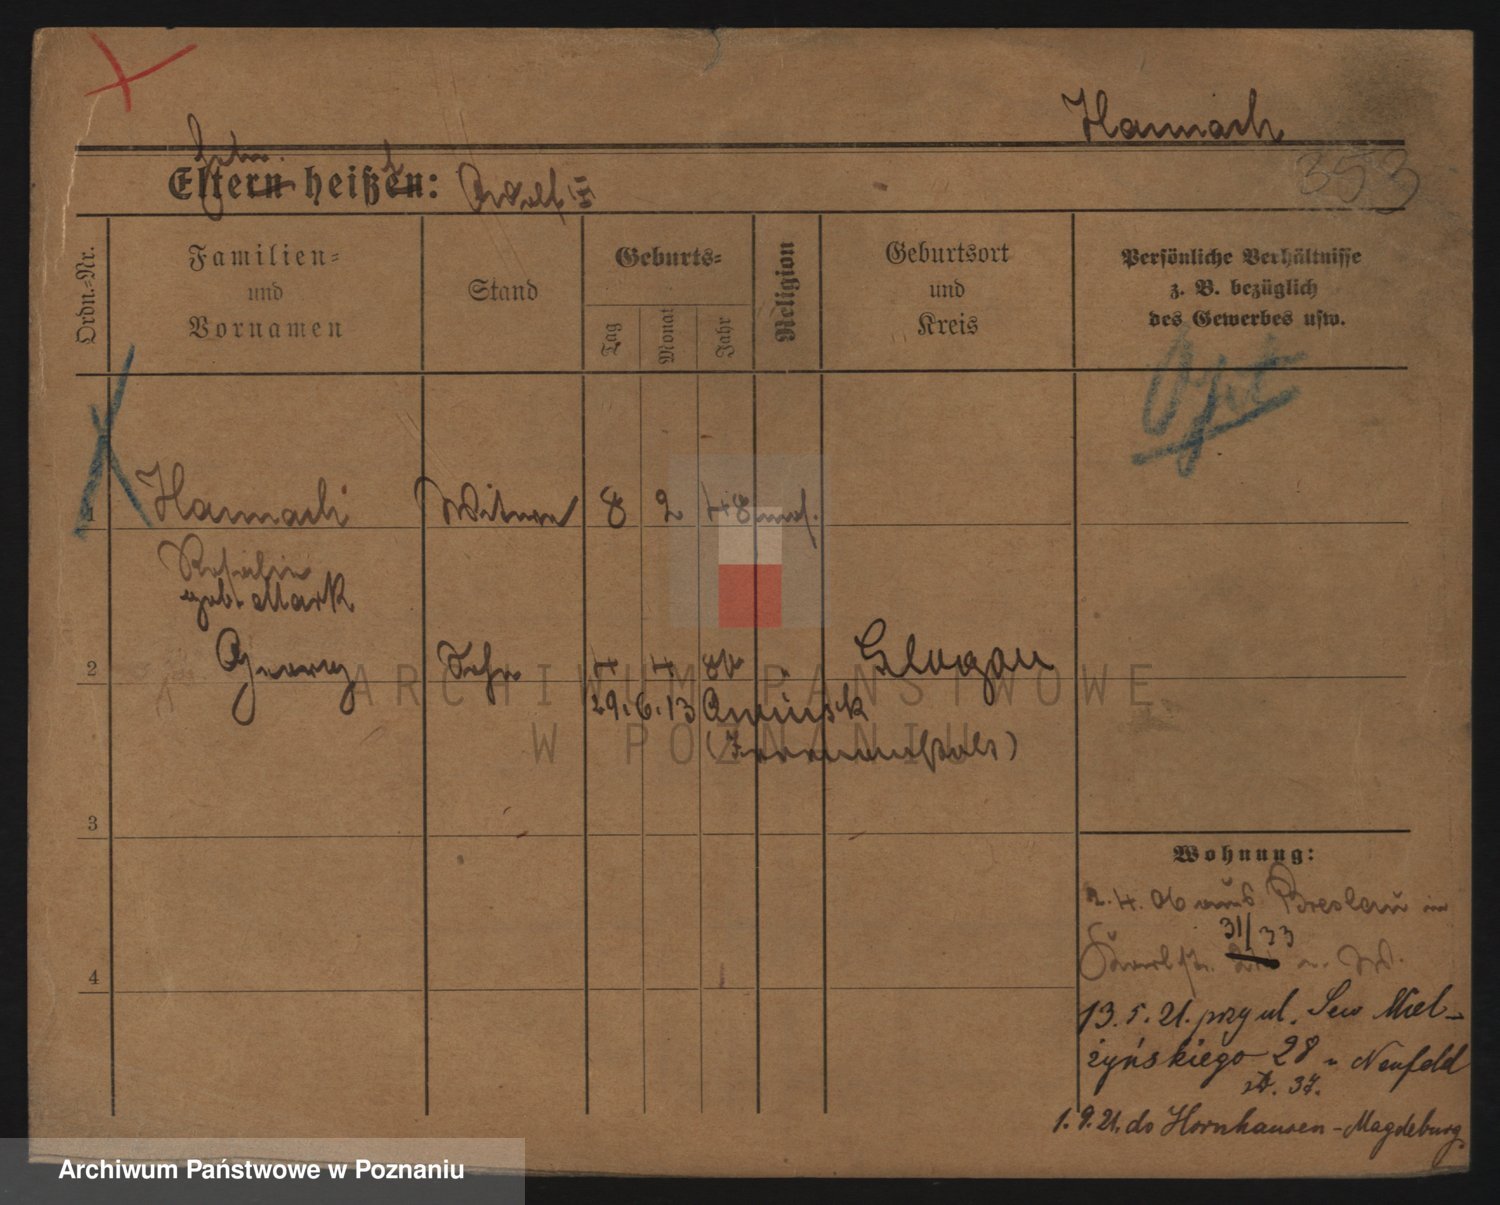 Hannach
353
Eltern heißen: Adolf III
Ordn.-Nr.
Familien-
und
Vornamen
Stand
Geburts-
Tag
Monat
Jahr
Religion
Geburtsort
und
Kreis
Persönliche Verhältnisse
z. B. bezüglich
des Gewerbes usw.
1 Hannach Witwe 8 2 48 mos.
Rosalie
geb. Mark
2 Georg 4 4 Glogau
29. 6. 13
3
4
Wohnung:
2. 4. 06 aus Breslau in
31/33
13. 5. 21. przy ul. Sew Miel-
żyńskiego 28 Neufeld
37.
1. 9. 21. do Hornhausen - Magdeburg
ARCHIWUM PAŃSTWOWE
W POZNANIU
Archiwum Państwowe w Poznaniu